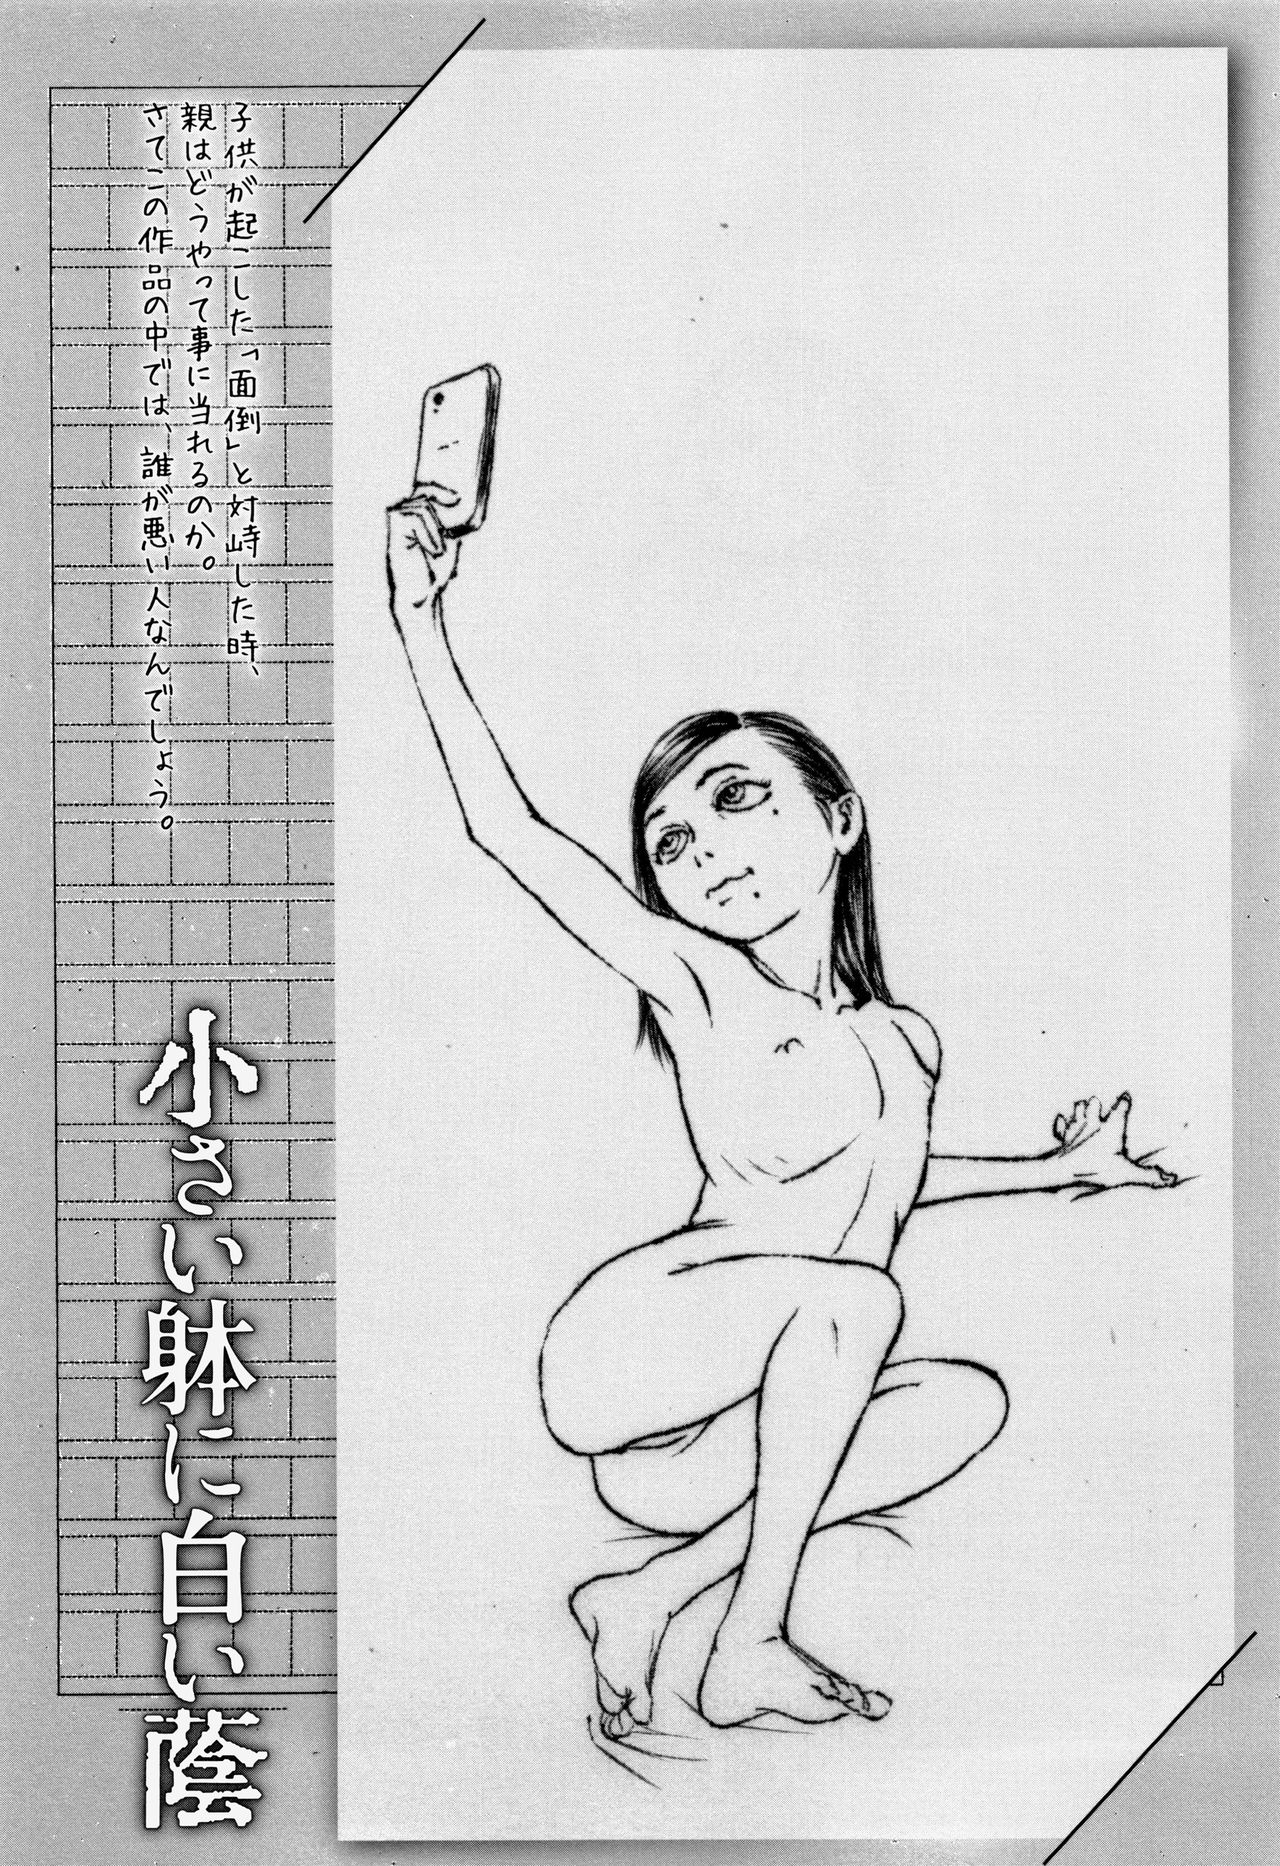 子供が起こした「面倒」と対峙した時、
親はどうやって事に当れるのか。
さてこの作品の中では、誰が悪い人なんでしょう。
小さい躰に白い蔭